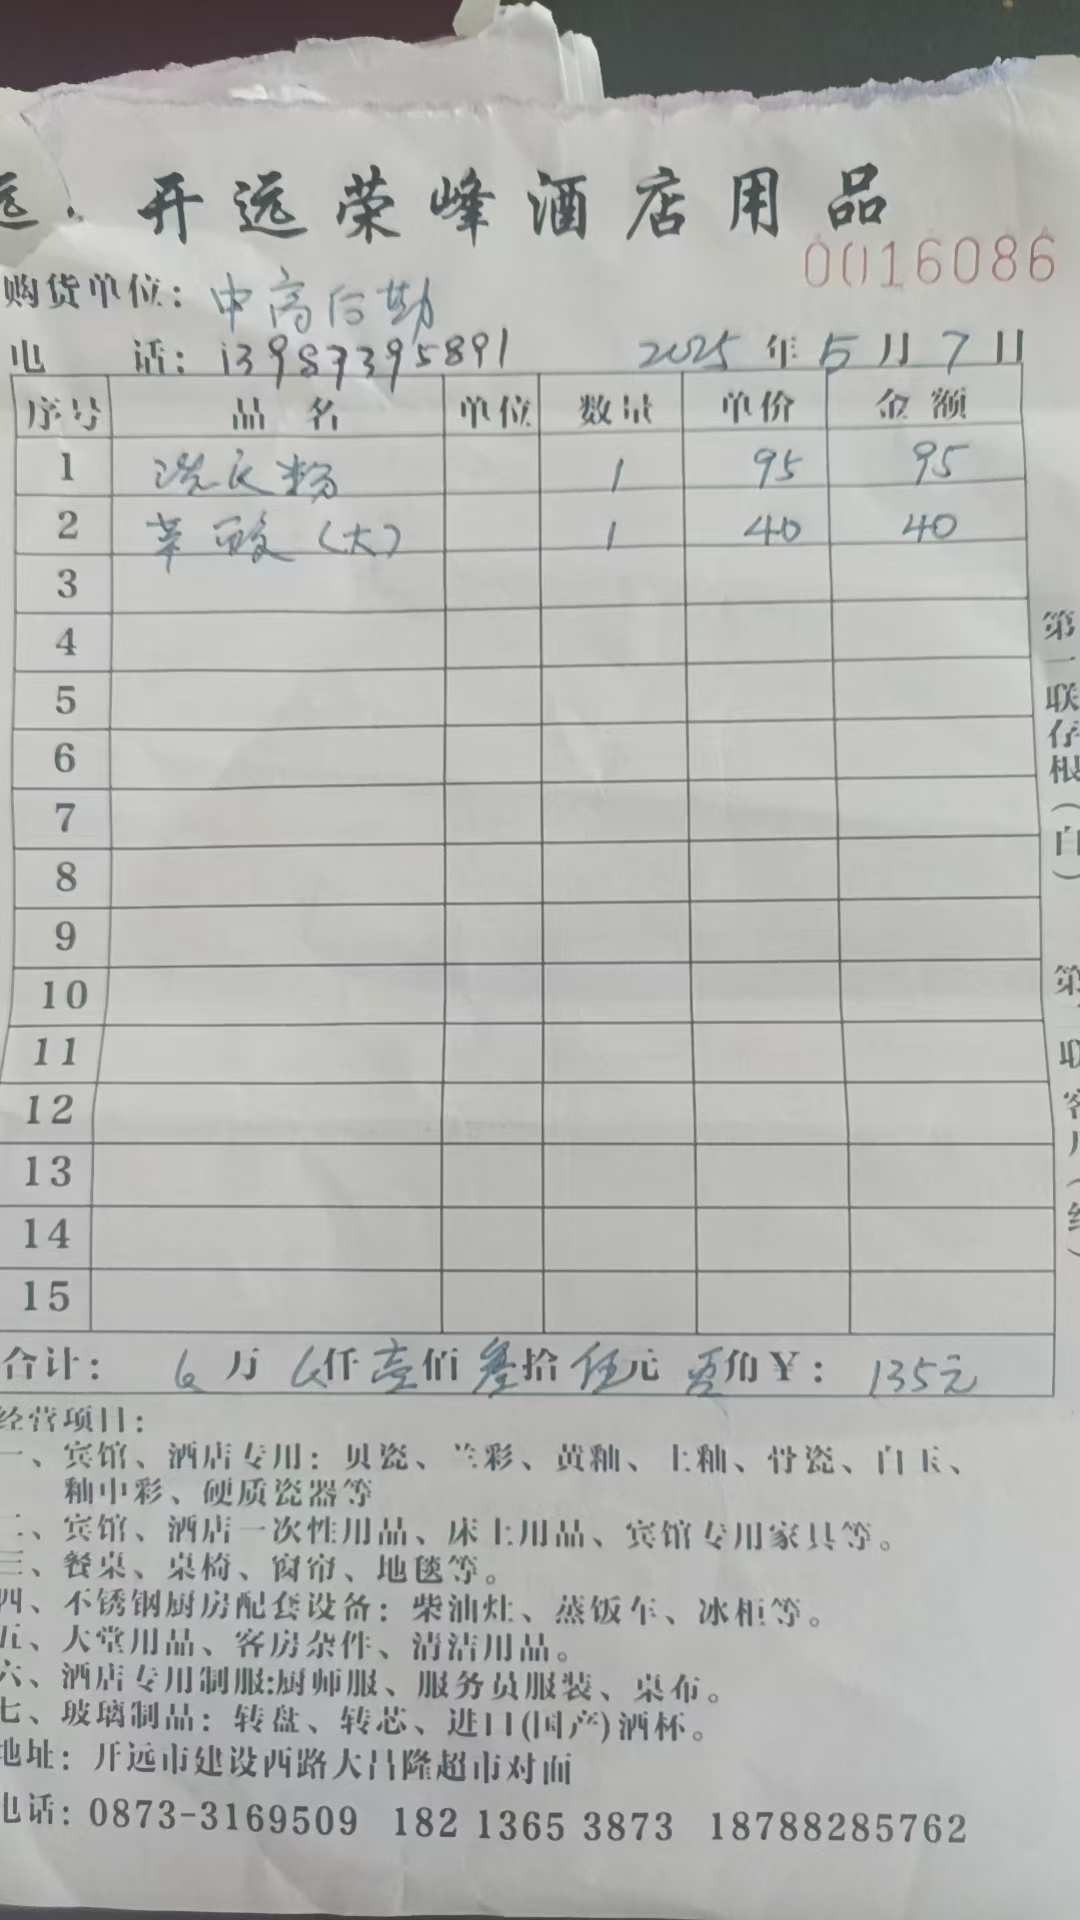 远. 开远荣峰酒店用品
0016086
购货单位: 中高后勤
电 话: 13987395891 2025年5月7日
序号 品名 单位 数量 单价 金额
1 洗衣粉 1 95 95
2 草酸(大) 1 40 40
3
4
5
6
7
8
9
10
11
12
13
14
15
第一联存根(白)
第二联客户(红)
合计: 万 仟壹佰叁拾伍元 角¥: 135元
经营项目:
一、宾馆、酒店专用: 贝瓷、兰彩、黄釉、土釉、骨瓷、白玉、
釉中彩、硬质瓷器等
二、宾馆、酒店一次性用品、床上用品、宾馆专用家具等。
三、餐桌、桌椅、窗帘、地毯等。
四、不锈钢厨房配套设备: 柴油灶、蒸饭车、冰柜等。
五、大堂用品、客房杂件、清洁用品。
六、酒店专用制服:厨师服、服务员服装、桌布。
七、玻璃制品: 转盘、转芯、进口(国产)酒杯。
地址: 开远市建设西路大昌隆超市对面
电话: 0873-3169509 182 1365 3873 18788285762